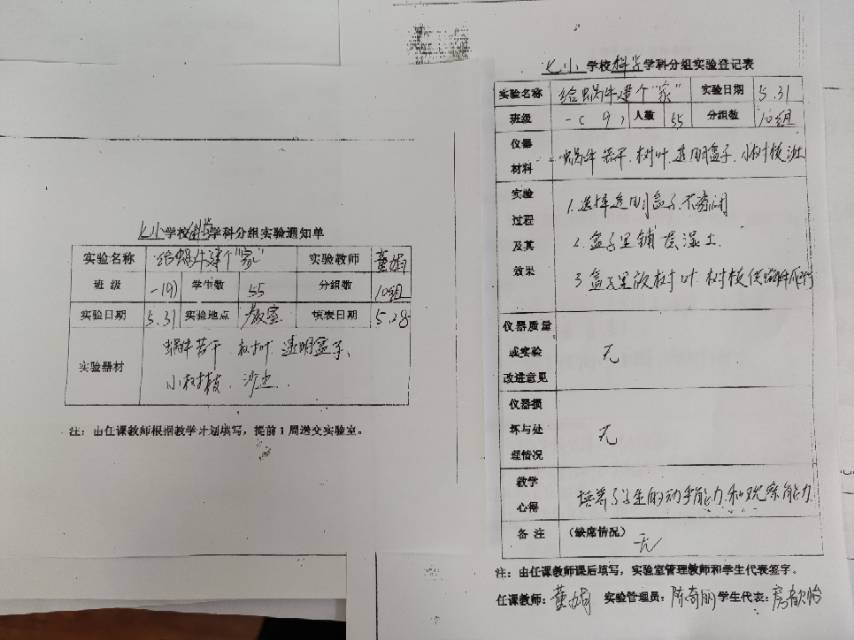 七小学校科学学科分组实验通知单
实验名称 给蜗牛建个"家" 实验教师 董娟
班级 一(9) 学生数 55 分组数 10组
实验日期 5.31 实验地点 教室 填表日期 5.28
实验器材 蜗牛若干 树叶 透明盒子、
小树枝、沙土.
注：由任课教师根据教学计划填写，提前1周送交实验室。
七小学校科学学科分组实验登记表
实验名称 给蜗牛建个"家" 实验日期 5.31
班级 一(9) 人数 55 分组数 10组
仪器材料 蜗牛若干、树叶、透明盒子、小树枝、沙土
实验过程及其效果
1.选择透明盒子、不密闭
2.盒子里铺层湿土
3.盒子里放树叶 树枝供蜗牛爬行
仪器质量或实验改进意见 无
仪器损坏与处理情况 无
教学心得 培养了学生的动手能力和观察能力.
备注 (缺席情况) 无
注：由任课教师课后填写，实验室管理教师和学生代表签字。
任课教师：董娟 实验管理员： 学生代表：